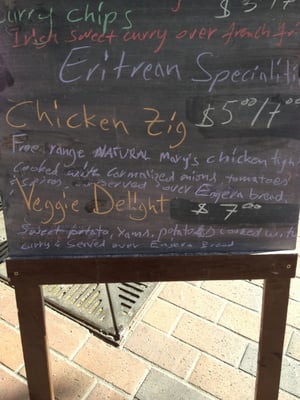 urry chips $
Irish sweet curry over french fr
Eritrean Specialiti
Chicken Zig $5.00/7.00
Free range NATURAL Mary's chicken
cooked with carmalized onions tomatoes
served over Enjera bread
Veggie Delight $7.00
Sweet potato, Yams, potatoes cooked with
curry & served over Enjera Bread